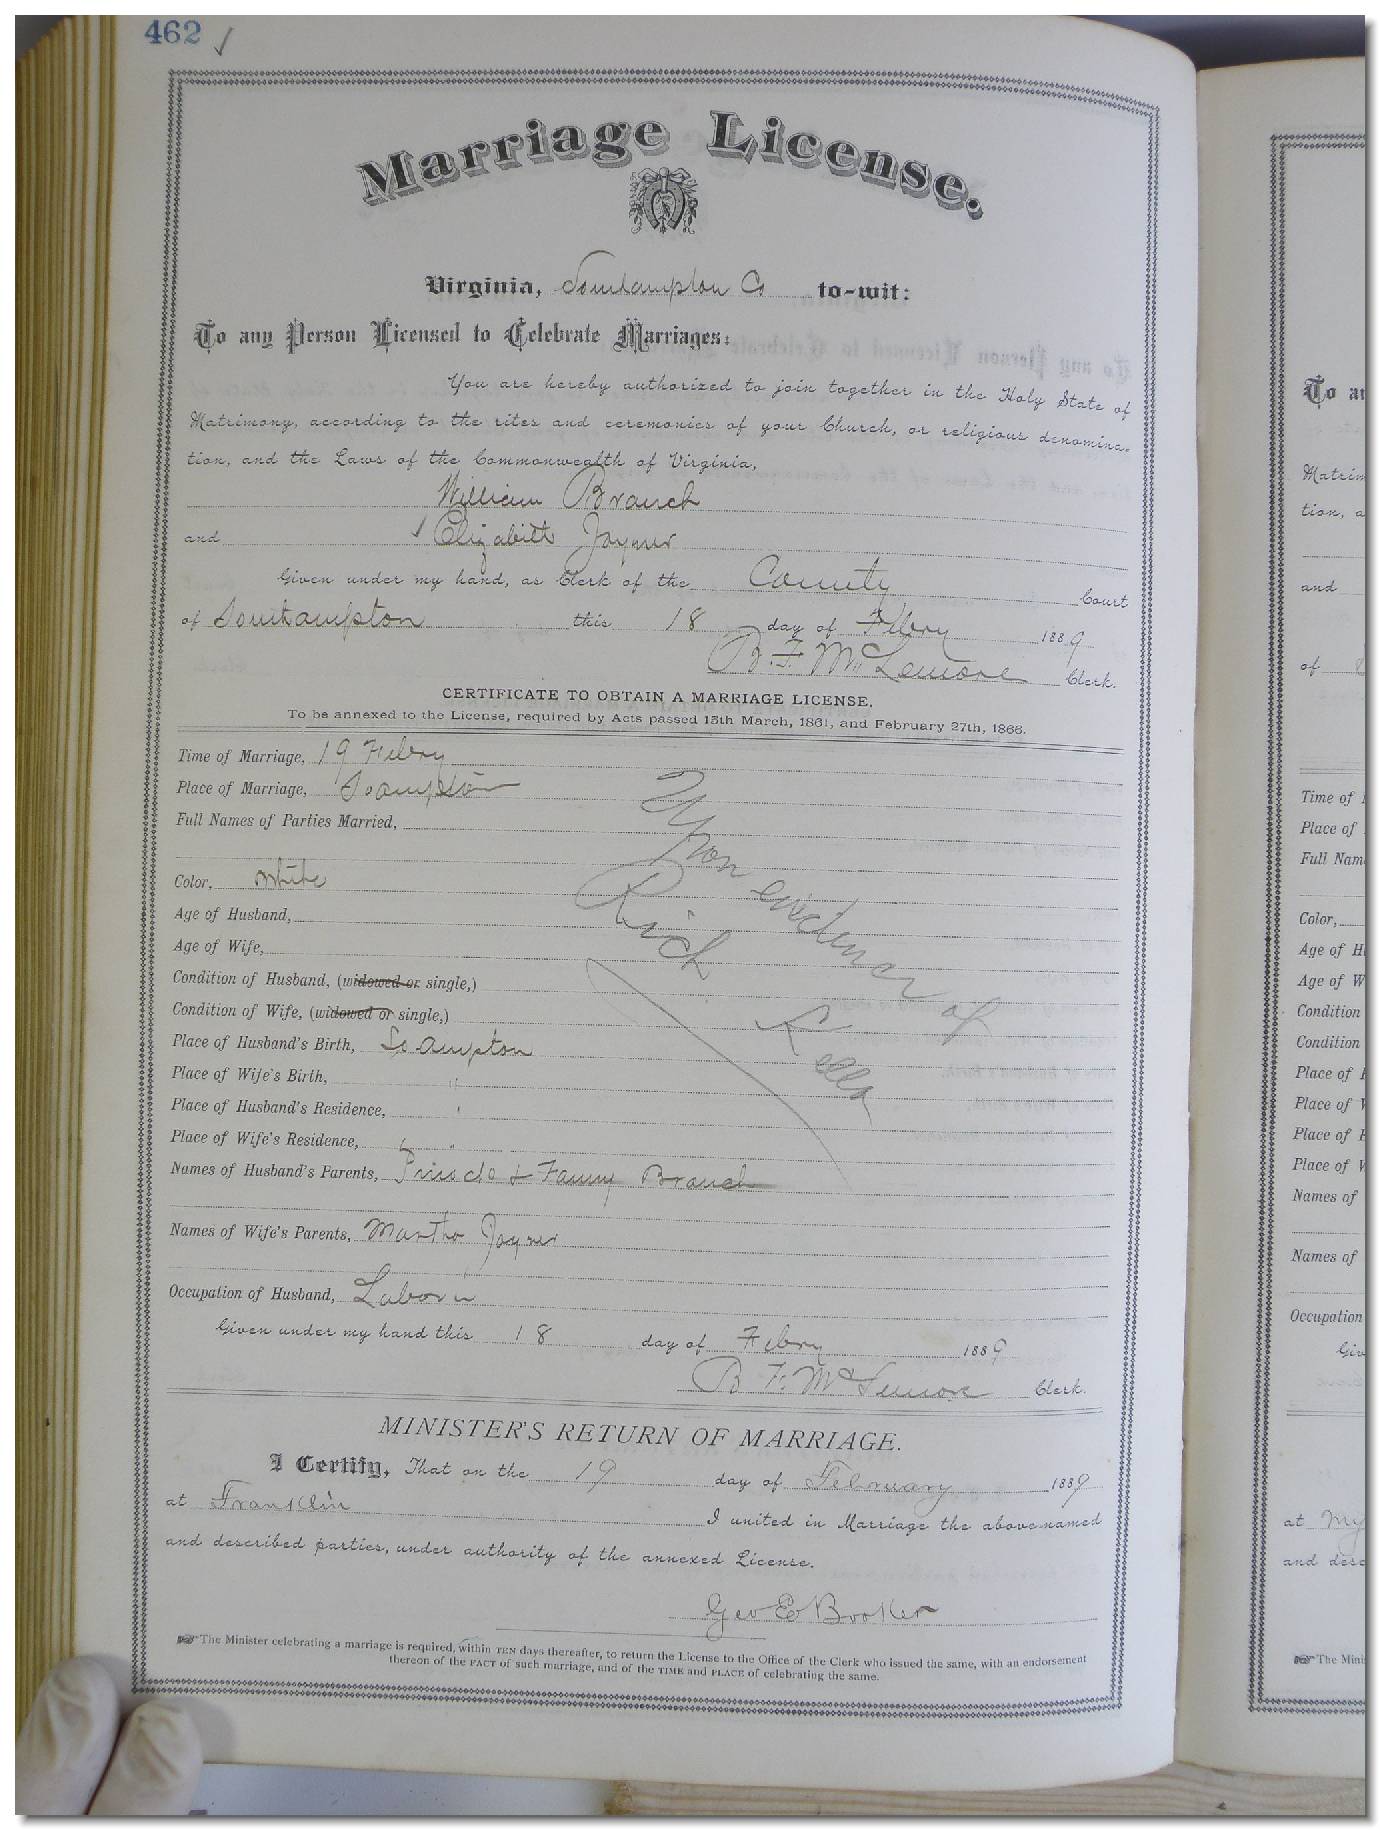 462 ✓
Marriage License.
Virginia, Southampton Co to-wit:
To any Person Licensed to Celebrate Marriages:
You are hereby authorized to join together in the Holy State of
Matrimony, according to the rites and ceremonies of your Church, or religious denomina-
tion, and the Laws of the Commonwealth of Virginia,
William Branch
and Elizabeth Joyner
Given under my hand, as Clerk of the County Court
of Southampton this 18 day of Febry 1889
B. F. McLemore Clerk.
CERTIFICATE TO OBTAIN A MARRIAGE LICENSE,
To be annexed to the License, required by Acts passed 15th March, 1861, and February 27th, 1866.
Time of Marriage, 19 Febry
Place of Marriage, Soampton
Full Names of Parties Married,
Upon evidence of
Rich
Color, White
Age of Husband,
Age of Wife,
Condition of Husband, (widowed or single,)
Condition of Wife, (widowed or single,)
Place of Husband's Birth, So ampton
Place of Wife's Birth, "
Place of Husband's Residence, "
Place of Wife's Residence, "
Names of Husband's Parents, & Fanny Branch
Names of Wife's Parents, Martha Joyner
Occupation of Husband, Laborer
Given under my hand this 18 day of Febry 1889
B F. McLemore Clerk.
MINISTER'S RETURN OF MARRIAGE.
I Certify, That on the 19 day of February 1889
at Franklin I united in Marriage the above-named
and described parties, under authority of the annexed License.
Geo E Booker
The Minister celebrating a marriage is required, within TEN days thereafter, to return the License to the Office of the Clerk who issued the same, with an endorsement
thereon of the FACT of such marriage, and of the TIME and PLACE of celebrating the same.
To a
Matrim
tion, a
and
of
Time of
Place of
Full Nam
Color,
Age of H
Age of W
Condition
Condition
Place of H
Place of W
Place of H
Place of W
Names of
Names of
Occupation
Giv
at My
and desc
The Mini